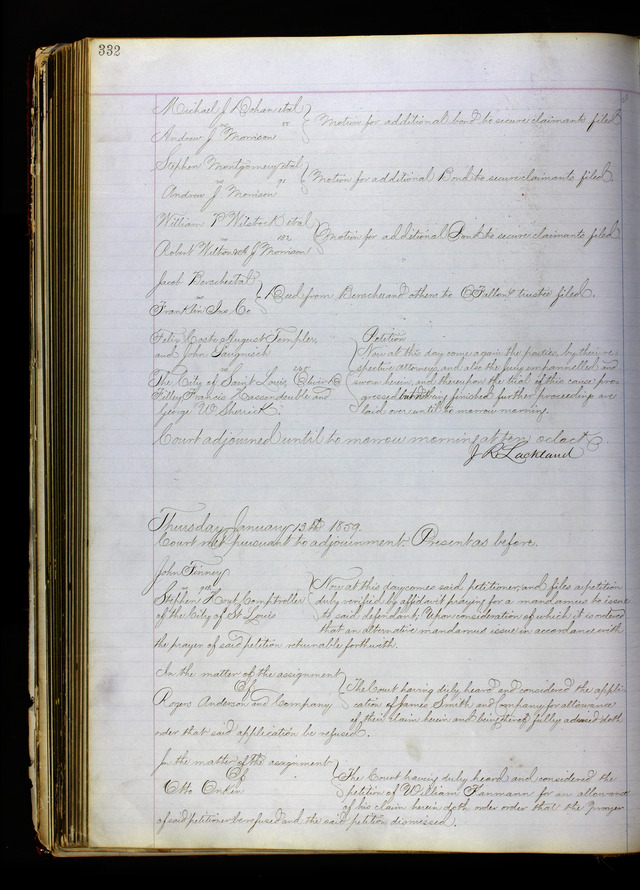 332
Michael J Dohan et al
vs
Andrew J Morrison
Motion for additional bond to secure claimants filed
Stephen Montgomery et al
vs
Andrew J Morrison
Motion for additional Bond to secure claimants filed.
William P et al
vs
Robert J Morrison
Motion for additional Bond to secure claimants filed
Jacob Bersche et al
vs
Franklin Ins Co
Deed from Bersche and others to O'Fallon trustee filed.
Felix Coste, August Templer,
and John
vs
The City of Saint Louis,
Filley Francis Hassendeuble and
George W. Sherrick
Petition
Now at this day come again the parties, by their re-
spective attorneys, and also the jury empannelled and
sworn herein, and thereupon the trial of this cause pro-
gressed but not being finished further proceeding are
laid over until to morrow morning.
Court adjourned until to morrow morning at ten o'clock.
J R Lackland
Thursday January 13th 1859.
Court met pursuant to adjournment. Present as before.
John Finney
vs
Stephen Hoyt Comptroller
of the City of St Louis
Now at this day comes said petitioner, and files a petition
duly verified by affidavit praying for a mandamus to issue
to said defendant; Upon consideration of which it is ordered
that an alternative mandamus issue in accordance with
the prayer of said petition returnable forthwith.
In the matter of the assignment
Of
Rogers Anderson and Company
The Court having duly heard and considered the appli-
cation of James Smith and Company for allowance
of their claim herein and being thereof fully advised doth
order that said application be refused.
In the matter of the assignment
Of
Otto Onkin
The Court having duly heard and considered the
petition of William Tanmann for an allowance
of his claim herein doth order order that the prayer
of said petitioner be refused and the said petition dismissed.